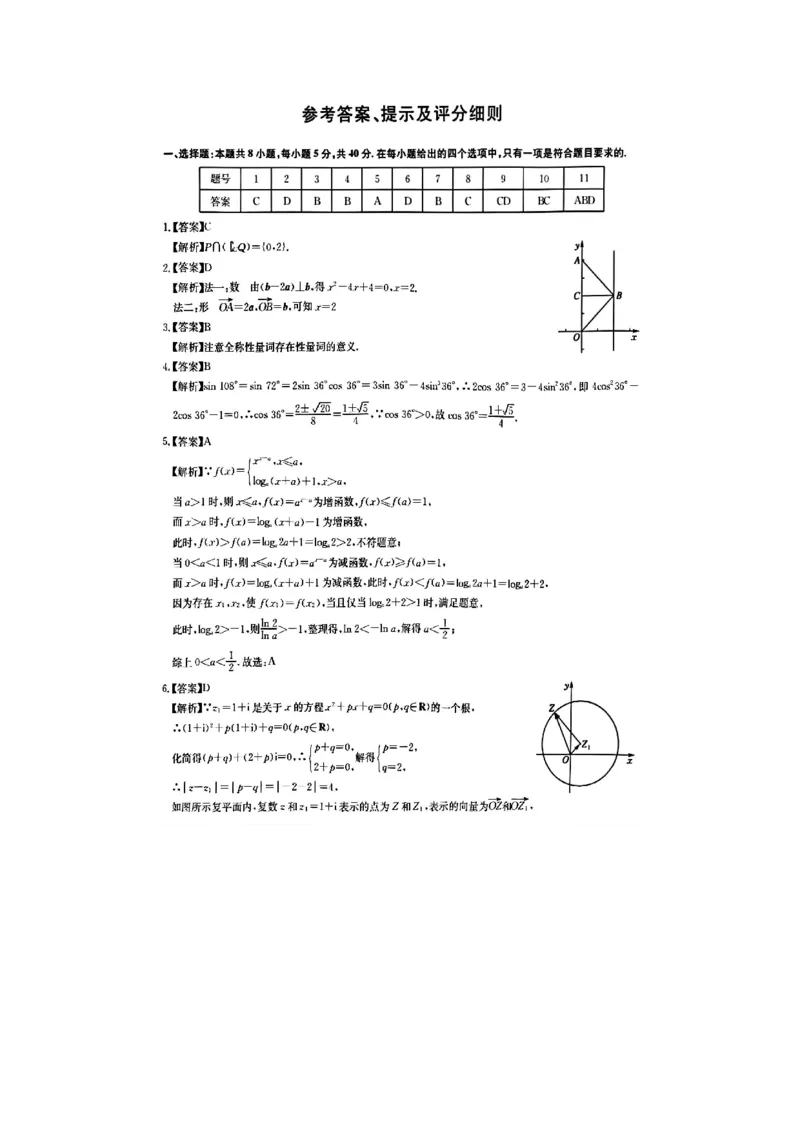 参考答案、提示及评分细则
一、选择题:本题共8小题,每小题5分,共40分.在每小题给出的四个选项中,只有一项是符合题目要求的.
题号 1 2 3 4 5 6 7 8 9 10 11
答案 C D B B A D B C CD BC ABD
1.【答案】C
【解析】P∩(∁ᵤQ)={0,2}.
2.【答案】D
【解析】法一:数 由(b-2a)⊥b,得x²-4x+4=0,x=2.
法二:形 OA→=2a,OB→=b,可知x=2
y
A
C
B
O
x
3.【答案】B
【解析】注意全称性量词存在性量词的意义.
4.【答案】B
【解析】sin 108°=sin 72°=2sin 36°cos 36°=3sin 36°-4sin³36°,∴2cos 36°=3-4sin²36°,即4cos²36°-
2cos 36°-1=0,∴cos 36°=(2±√20)/8=(1±√5)/4,∵cos 36°>0,故cos 36°=(1+√5)/4.
5.【答案】A
【解析】∵f(x)={x^(x-a),x≤a,
logₐ(x+a)+1,x>a,
当a>1时,则x≤a,f(x)=a^(x-a)为增函数,f(x)≤f(a)=1,
而x>a时,f(x)=logₐ(x+a)-1为增函数,
此时,f(x)>f(a)=logₐ2a+1=logₐ2>2,不符题意;
当0<a<1时,则x≤a,f(x)=a^(x-a)为减函数,f(x)≥f(a)=1,
而x>a时,f(x)=logₐ(x+a)+1为减函数,此时,f(x)<f(a)=logₐ2a+1=logₐ2+2,
因为存在x₁,x₂,使f(x₁)=f(x₂),当且仅当logₐ2+2>1时,满足题意,
此时,logₐ2>-1,则ln 2/ln a>-1,整理得,ln 2<-ln a,解得a<1/2;
综上0<a<1/2.故选:A
6.【答案】D
【解析】∵z₁=1+i是关于x的方程x²+px+q=0(p,q∈R)的一个根,
∴(1+i)²+p(1+i)+q=0(p,q∈R),
化简得(p+q)+(2+p)i=0,∴{p+q=0,2+p=0,解得{p=-2,q=2,
∴|z-z₁|=|p-q|=|-2-2|=4,
如图所示复平面内,复数z和z₁=1+i表示的点为Z和Z₁,表示的向量为OZ→和OZ₁→,
y
Z
Z₁
O
x